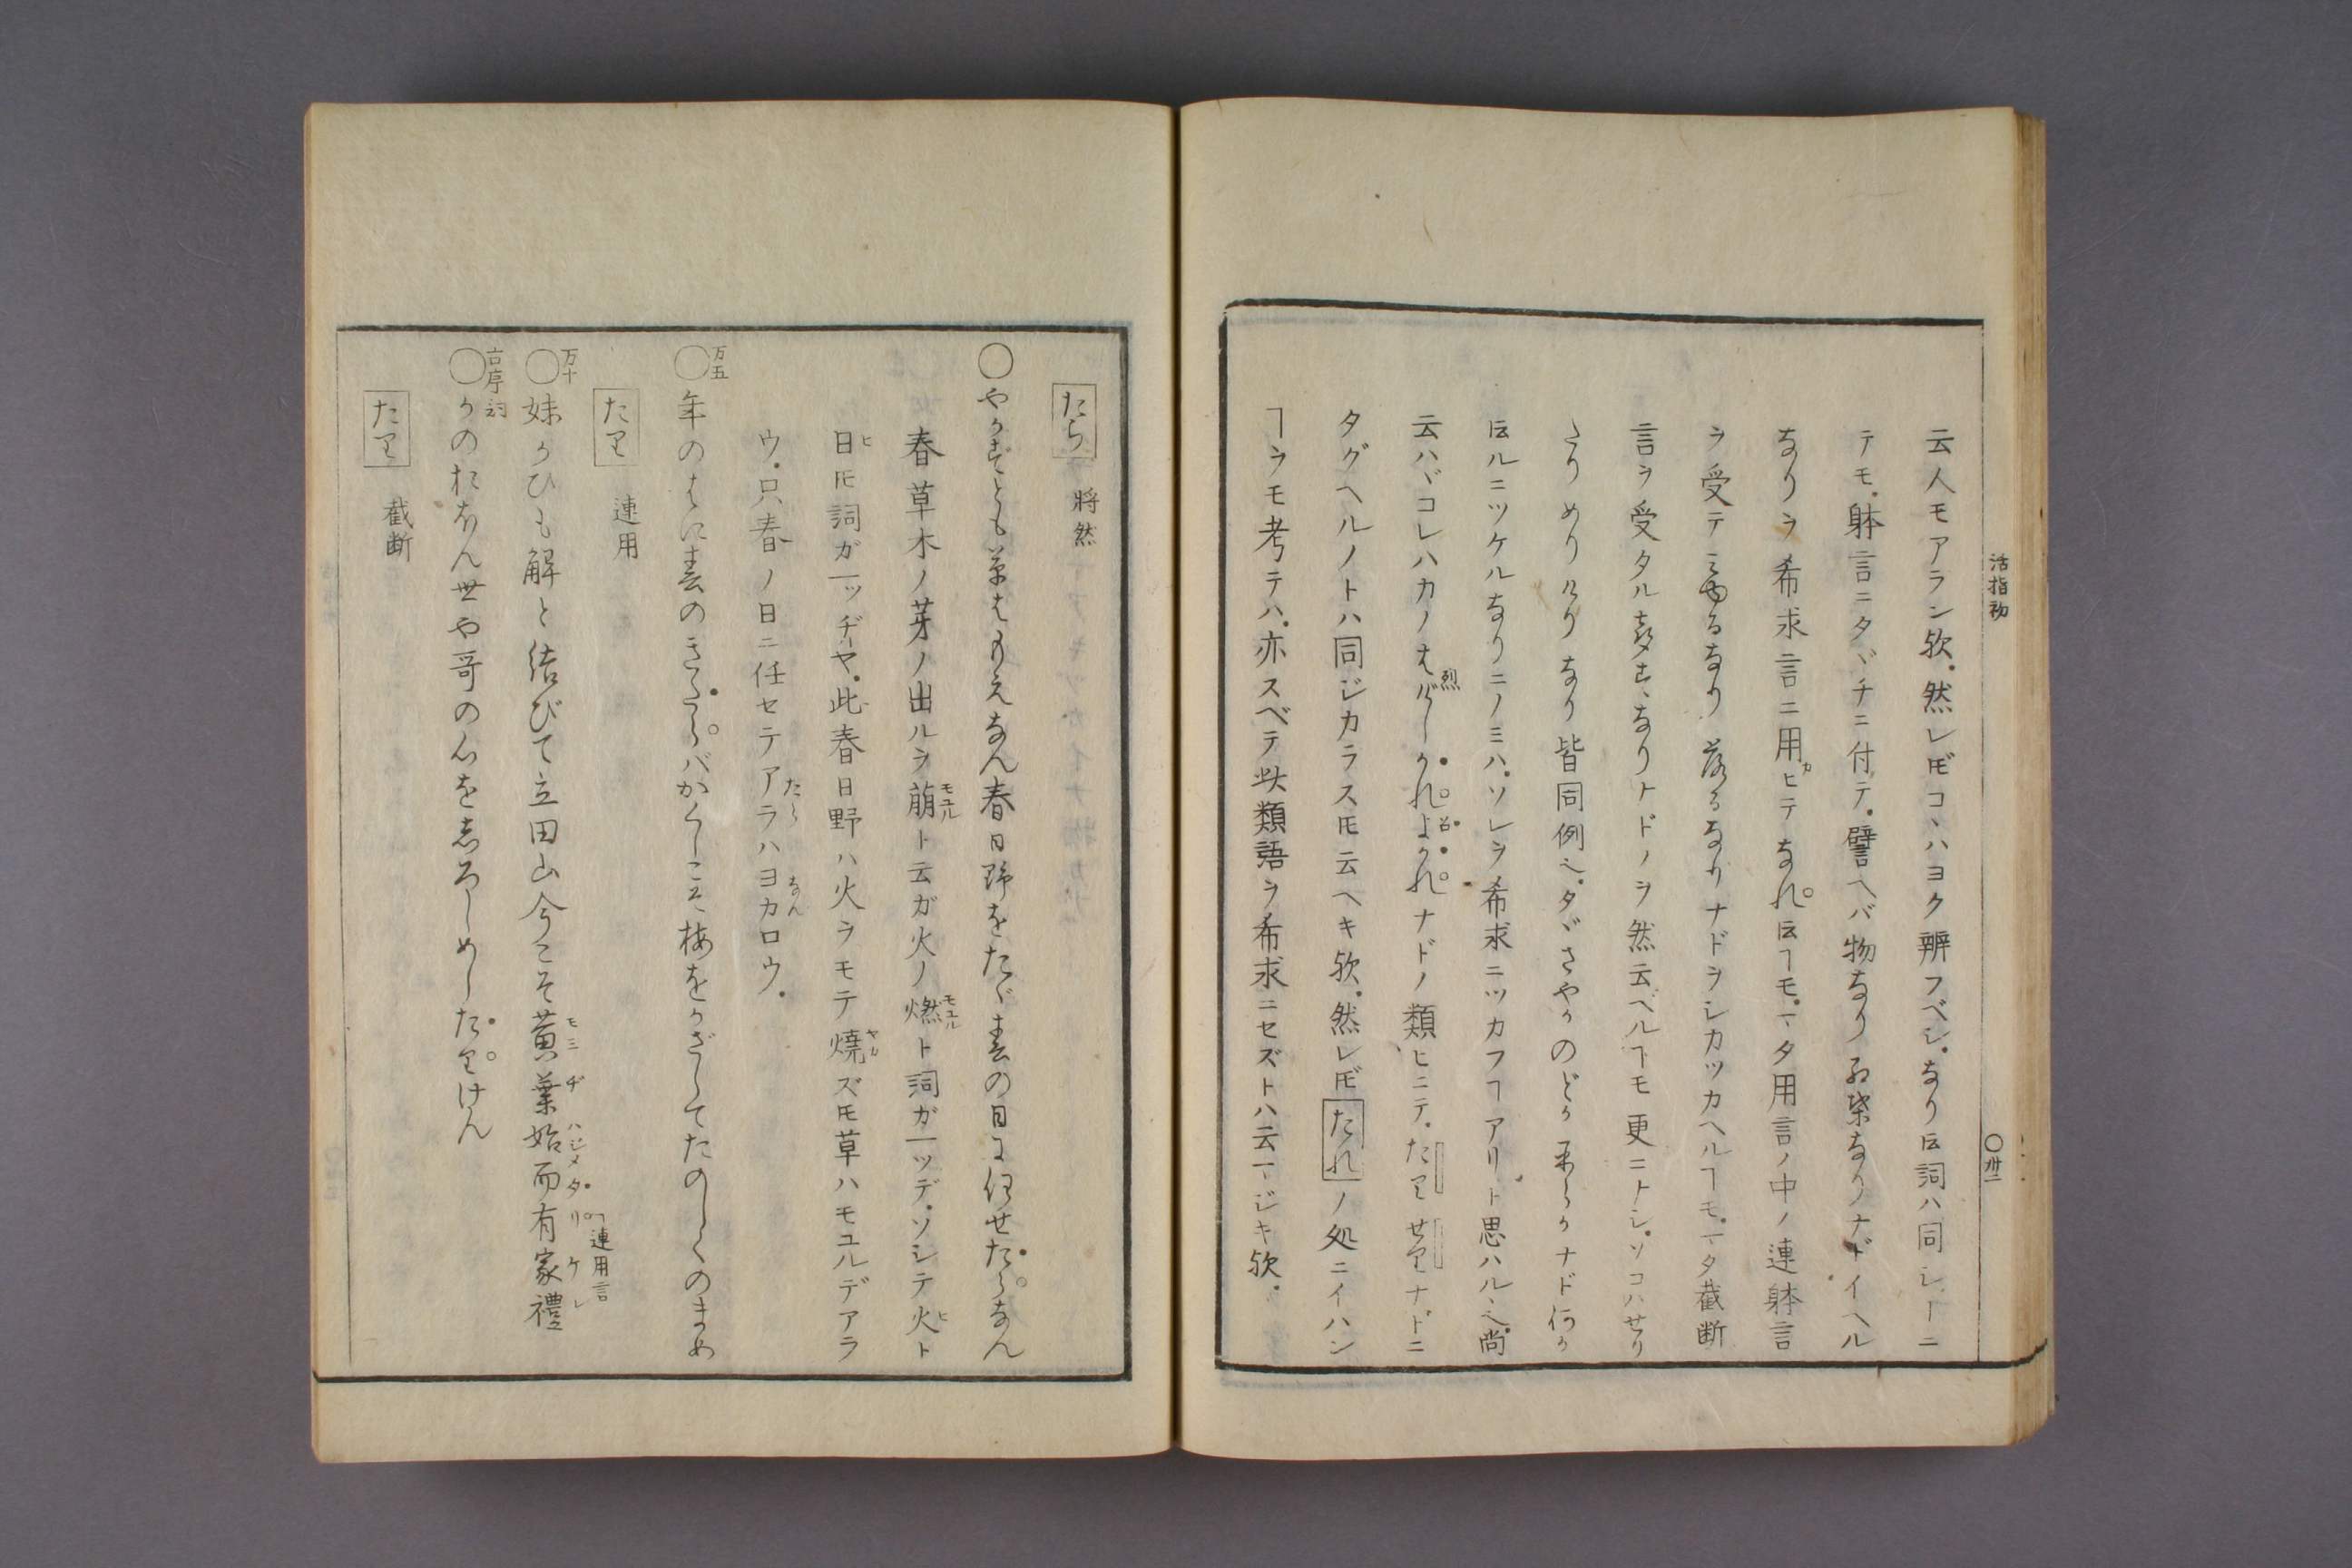 活指初
〇卅二
云人モアラン欤。然レ𪜈コヽハヨク辨フベシ。なりト云詞ハ同シヿニ
テモ。躰言ニタヾチニ付テ。譬ヘバ物なり なりナドイヘル
なりヲ希求言ニ用ヒテなれト云ヿモ。一タ用言ノ中ノ連躰言
ヲ受テ なり 落るなりナドヲシカツカヘルヿモ。一タ截断
言ヲ受タル なりナドノヲ然云ベルヿモ更ニナシ。ソコハせり
たり めり けり なり皆同例也。タヾさやか のどか ナド何か
ト云ルニツケルなりニノミハ。ソレヲ希求ニツカフヿアリト思ハルヽ也。尚
云ハヾコレハカノはげしかれ よかれナドノ類ヒニテ。たり せりナドニ
タグヘルノトハ同ジカラス𪜈云ヘキ欤。然レ𪜈たれノ処ニイハン
ヿヲモ考テハ。亦スベテ此類語ヲ希求ニセズトハ云一ジキ欤。
たら 將然
〇やかずとも草はもえなん春日野をたゞ春の日に任せたらなん
春草木ノ芽ノ出ルヲ萠ト云ガ火ノ燃ト詞ガ一ツデ。ソシテ火ト
日𪜈詞ガ一ツヂヤ。此春日野ハ火ヲモテ燒ズ𪜈草ハモユルデアラ
ウ。只春ノ日ニ任セテアラハヨカロウ。
万五〇年のはに春のきたらバかくしこそ梅をかざしてたのしくのまめ
たり 連用
万十〇妹がひも解と結びて立田山今こそ黄葉始而有家禮
連用言
古序詞〇かのおほん世や哥の心をしろしめしたりけん
たり 截断